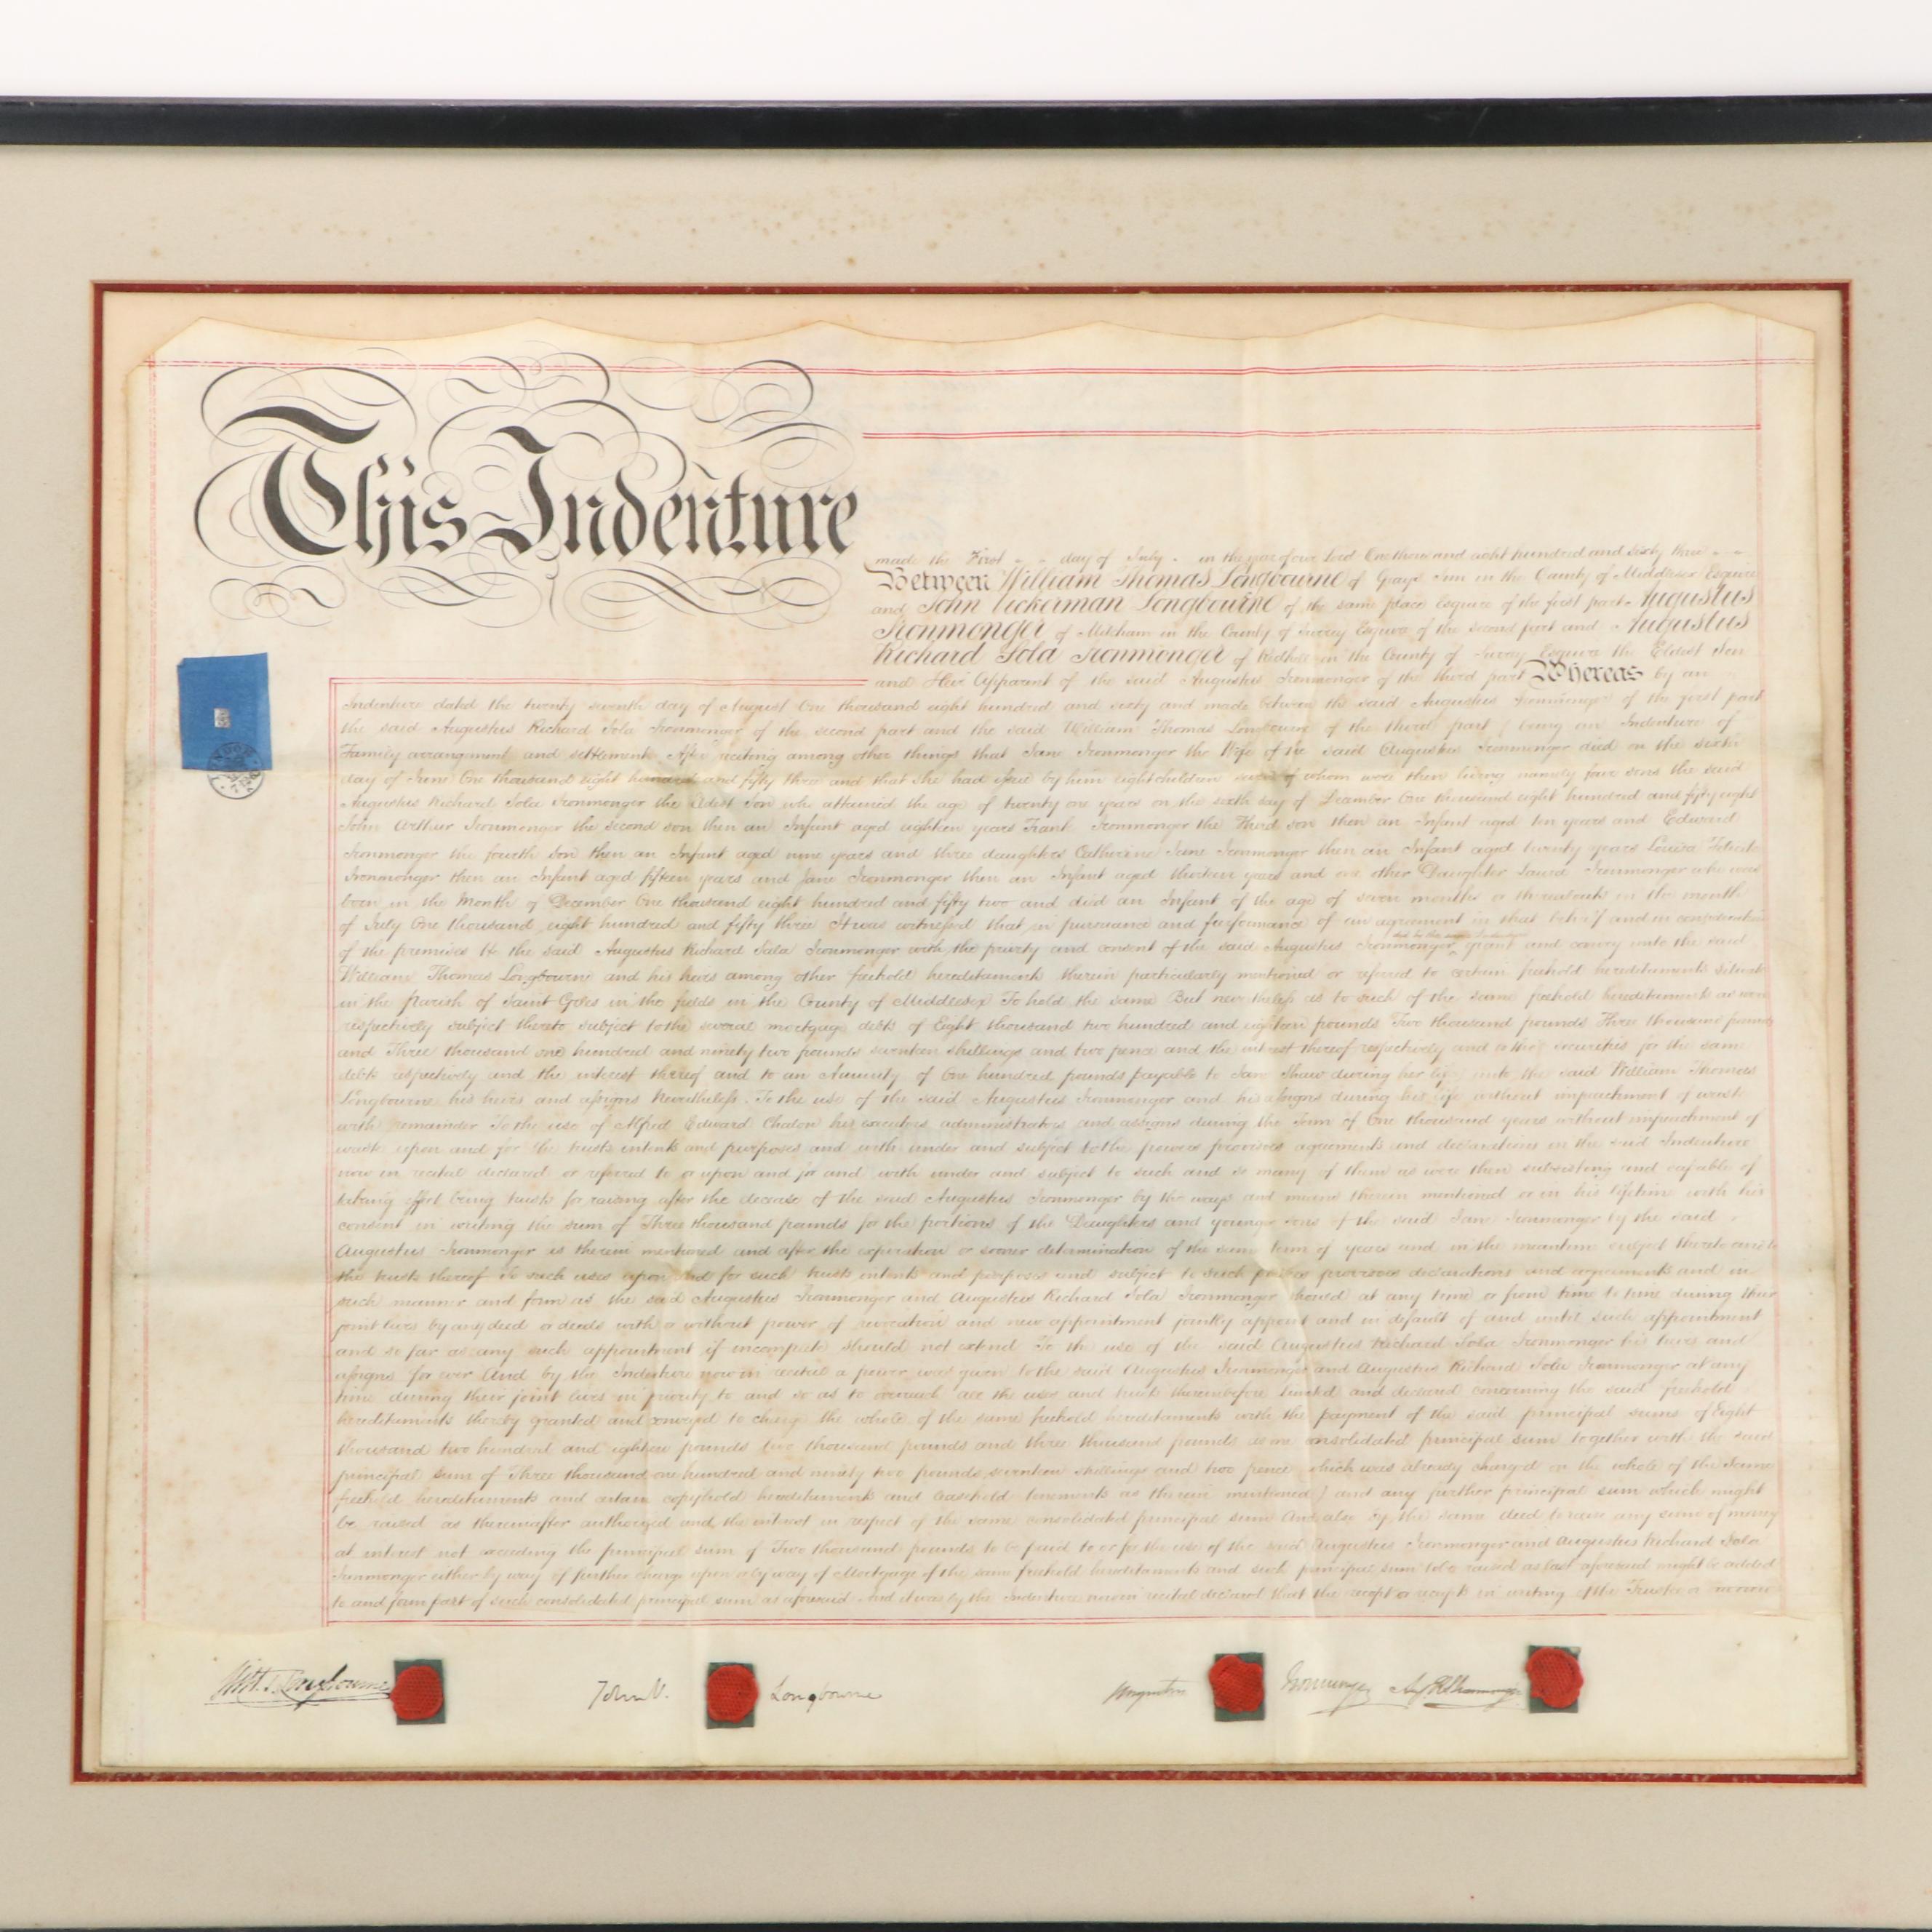 This Indenture
made the First day of July in the year of our Lord One thousand eight hundred and sixty three
Between William Thomas Longbourne of Grays Inn in the County of Middlesex Esquire
and John Vickerman Longbourne of the same place Esquire of the first part Augustus
Ironmonger of Mitcham in the County of Surrey Esquire of the second part and Augustus
Richard Sola Ironmonger of Redhill in the County of Surrey Esquire the Eldest Son
and Heir Apparent of the said Augustus Ironmonger of the third part Whereas by an
Indenture dated the twenty seventh day of August One thousand eight hundred and sixty and made between the said Augustus Ironmonger of the first part
the said Augustus Richard Sola Ironmonger of the second part and the said William Thomas Longbourne of the third part (being an Indenture of
Family arrangement and settlement After reciting among other things that Jane Ironmonger the Wife of the said Augustus Ironmonger died on the sixth
day of June One thousand eight hundred and fifty three and that she had issue by him eight children seven of whom were then living namely four sons the said
Augustus Richard Sola Ironmonger the eldest son who attained the age of twenty one years on the sixth day of December One thousand eight hundred and fifty eight
John Arthur Ironmonger the second son then an Infant aged eighteen years Frank Ironmonger the third son then an Infant aged ten years and Edward
Ironmonger the fourth son then an Infant aged nine years and three daughters Catherine Jane Ironmonger then an Infant aged twenty years Louisa
Ironmonger then an Infant aged fifteen years and Jane Ironmonger then an Infant aged thirteen years and one other Daughter Laura Ironmonger who was
born in the Month of December One thousand eight hundred and fifty two and died an Infant of the age of seven months or thereabouts in the month
of July One thousand eight hundred and fifty three It was witnessed that in pursuance and performance of an agreement in that behalf and in consideration
of the premises He the said Augustus Richard Sola Ironmonger with the privity and consent of the said Augustus Ironmonger grant and convey unto the said
William Thomas Longbourne and his heirs among other freehold hereditaments therein particularly mentioned or referred to certain freehold hereditaments situate
in the Parish of Saint Giles in the fields in the County of Middlesex To hold the same But nevertheless as to such of the same freehold hereditaments as were
respectively subject thereto subject to the several mortgage debts of Eight thousand two hundred and eighteen pounds Two thousand pounds Three thousand pounds
and Three thousand one hundred and ninety two pounds seventeen shillings and two pence and the interest thereof respectively and to the securities for the same
debts respectively and the interest thereof and to an Annuity of One hundred pounds payable to Jane Shaw during her life unto the said William Thomas
Longbourne his heirs and assigns Nevertheless To the use of the said Augustus Ironmonger and his assigns during his life without impeachment of waste
with remainder To the use of Alfred Edward Chalon his executors administrators and assigns during the term of One thousand years without impeachment of
waste upon and for the trusts intents and purposes and with under and subject to the powers provisoes agreements and declarations in the said Indenture
now in recital declared or referred to or upon and for and with under and subject to such and so many of them as were then subsisting and capable of
taking effect being trusts for raising after the decease of the said Augustus Ironmonger by the ways and means therein mentioned or in his lifetime with his
consent in writing the sum of Three thousand pounds for the portions of the Daughters and younger sons of the said Jane Ironmonger by the said
Augustus Ironmonger as therein mentioned and after the expiration or sooner determination of the same term of years and in the meantime subject thereto and to
the trusts thereof To such uses upon and for such trusts intents and purposes and subject to such powers provisoes declarations and agreements and in
such manner and form as the said Augustus Ironmonger and Augustus Richard Sola Ironmonger should at any time or from time to time during their
joint lives by any deed or deeds with or without power of revocation and new appointment jointly appoint and in default of and until such appointment
and so far as any such appointment if incomplete should not extend To the use of the said Augustus Richard Sola Ironmonger his heirs and
assigns for ever And by the Indenture now in recital a power was given to the said Augustus Ironmonger and Augustus Richard Sola Ironmonger at any
time during their joint lives in priority to and so as to overreach all the uses and trusts thereinbefore limited and declared concerning the said freehold
hereditaments thereby granted and conveyed to charge the whole of the same freehold hereditaments with the payment of the said principal sums of Eight
thousand two hundred and eighteen pounds two thousand pounds and three thousand pounds as one consolidated principal sum together with the said
principal sum of Three thousand one hundred and ninety two pounds seventeen shillings and two pence which was already charged on the whole of the same
freehold hereditaments and certain copyhold hereditaments and leasehold tenements as therein mentioned) and any further principal sum which might
be raised as thereinafter authorized and the interest in respect of the same consolidated principal sum And also by the same deed to raise any sum of money
at interest not exceeding the principal sum of Two thousand pounds to be paid to or for the use of the said Augustus Ironmonger and Augustus Richard Sola
Ironmonger either by way of further charge upon or by way of Mortgage of the same freehold hereditaments and such principal sum to be raised as last aforesaid might be added
to and form part of such consolidated principal sum as aforesaid And it was by the Indenture now in recital declared that the receipt or receipts in writing of the Trustee or
Will. T. Longbourne John V. Longbourne Augustus Ironmonger Aug. R S Ironmonger